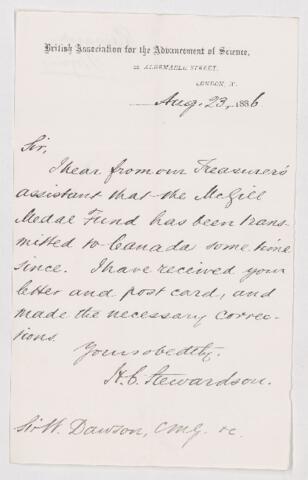 British Association for the Advancement of Science,
22 ALBEMARLE STREET,
LONDON, W.
Aug. 23, 1886
Sir,
I hear from our Treasurer's
assistant that the McGill
Medal Fund has been trans-
mitted to Canada some time
since. I have received your
letter and post card, and
made the necessary correc-
tions.
Yours obedtly.
H. C. Stewardson.
Sir W. Dawson, CMG. &c.